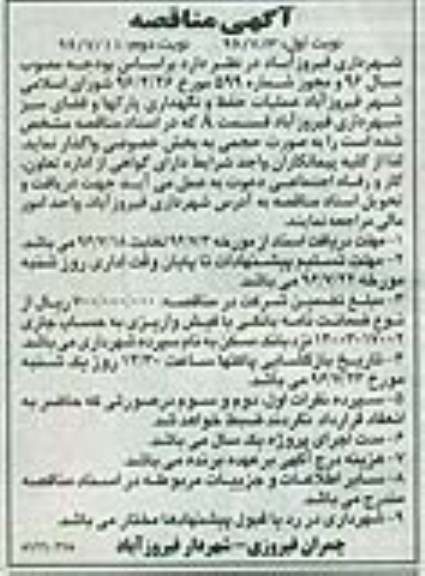 آگهی مناقصه
نوبت اول: ۹۶/۷/۳ نوبت دوم: ۹۶/۷/۱۱
شهرداری فیروزآباد در نظر دارد براساس بودجه مصوب
سال ۹۶ و مجوز شماره ۵۹۹ مورخ ۹۶/۲/۲۶ شورای اسلامی
شهر فیروزآباد عملیات حفظ و نگهداری پارکها و فضای سبز
شهرداری فیروزآباد قسمت A که در اسناد مناقصه مشخص
شده است را به صورت حجمی به بخش خصوصی واگذار نماید.
لذا از کلیه پیمانکاران واجد شرایط دارای گواهی از اداره تعاون،
کار و رفاه اجتماعی دعوت به عمل می آید جهت دریافت و
تحویل اسناد مناقصه به آدرس شهرداری فیروزآباد، واحد امور
مالی مراجعه نمایند.
۱- مهلت دریافت اسناد از مورخه ۹۶/۷/۳ لغایت ۹۶/۷/۱۸ می باشد.
۲- مهلت تسلیم پیشنهادات تا پایان وقت اداری روز شنبه
مورخه ۹۶/۷/۲۲ می باشد.
۳- مبلغ تضمین شرکت در مناقصه ریال از
نوع ضمانت نامه بانکی یا فیش واریزی به حساب جاری
نزد بانک مسکن به نام سپرده شهرداری می باشد.
۴- تاریخ بازگشایی پاکتها ساعت ۱۳:۳۰ روز یک شنبه
مورخ ۹۶/۷/۲۳ می باشد.
۵- سپرده نفرات اول، دوم و سوم درصورتی که حاضر به
انعقاد قرارداد نگردند ضبط خواهد شد.
۶- مدت اجرای پروژه یک سال می باشد.
۷- هزینه درج آگهی بر عهده برنده می باشد.
۸- سایر اطلاعات و جزییات مربوطه در اسناد مناقصه
مندرج می باشد.
۹- شهرداری در رد یا قبول پیشنهادها مختار می باشد.
چمران فیروزی - شهردار فیروزآباد